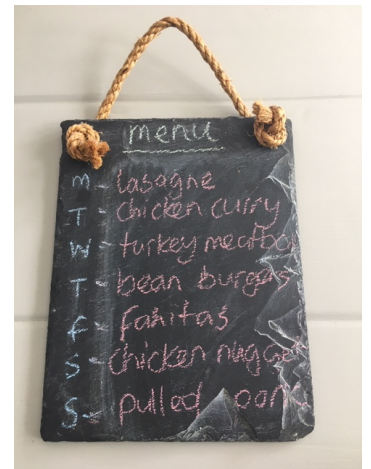 menu
M - lasagne
T - chicken curry
W - turkey meatbal
T - bean burgers
F - fajitas
S - chicken nugget
S - pulled pork